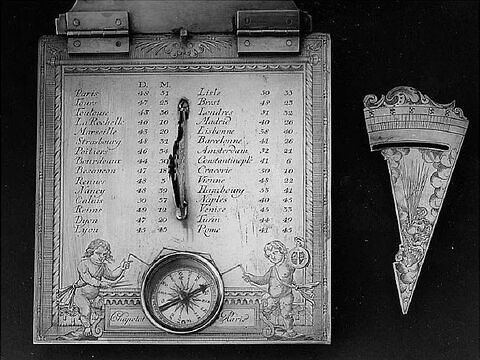 D. M.
Paris 48 51
Tours 47 23
Toulouse 43 36
La Rochelle 46 10
Marseille 43 20
Strasbourg 48 31
Poitiers 46 34
Bourdeaux 44 50
Besancon 47 18
Rennes 48 3
Nancy 48 39
Calais 50 57
Renne 49 12
Dyon 47 20
Lyon 45 45
Lisle 50 33
Brest 48 23
Londres 51 32
Madrid 40 26
Lisbonne 38 40
Barcelonne 41 26
Amsterdam 52 21
Constantinople 41 6
Cracovie 50 10
Vienne 48 22
Hambourg 53 41
Naples 40 45
Venise 45 33
Turin 44 49
Rome 41 45
Chapotot Paris